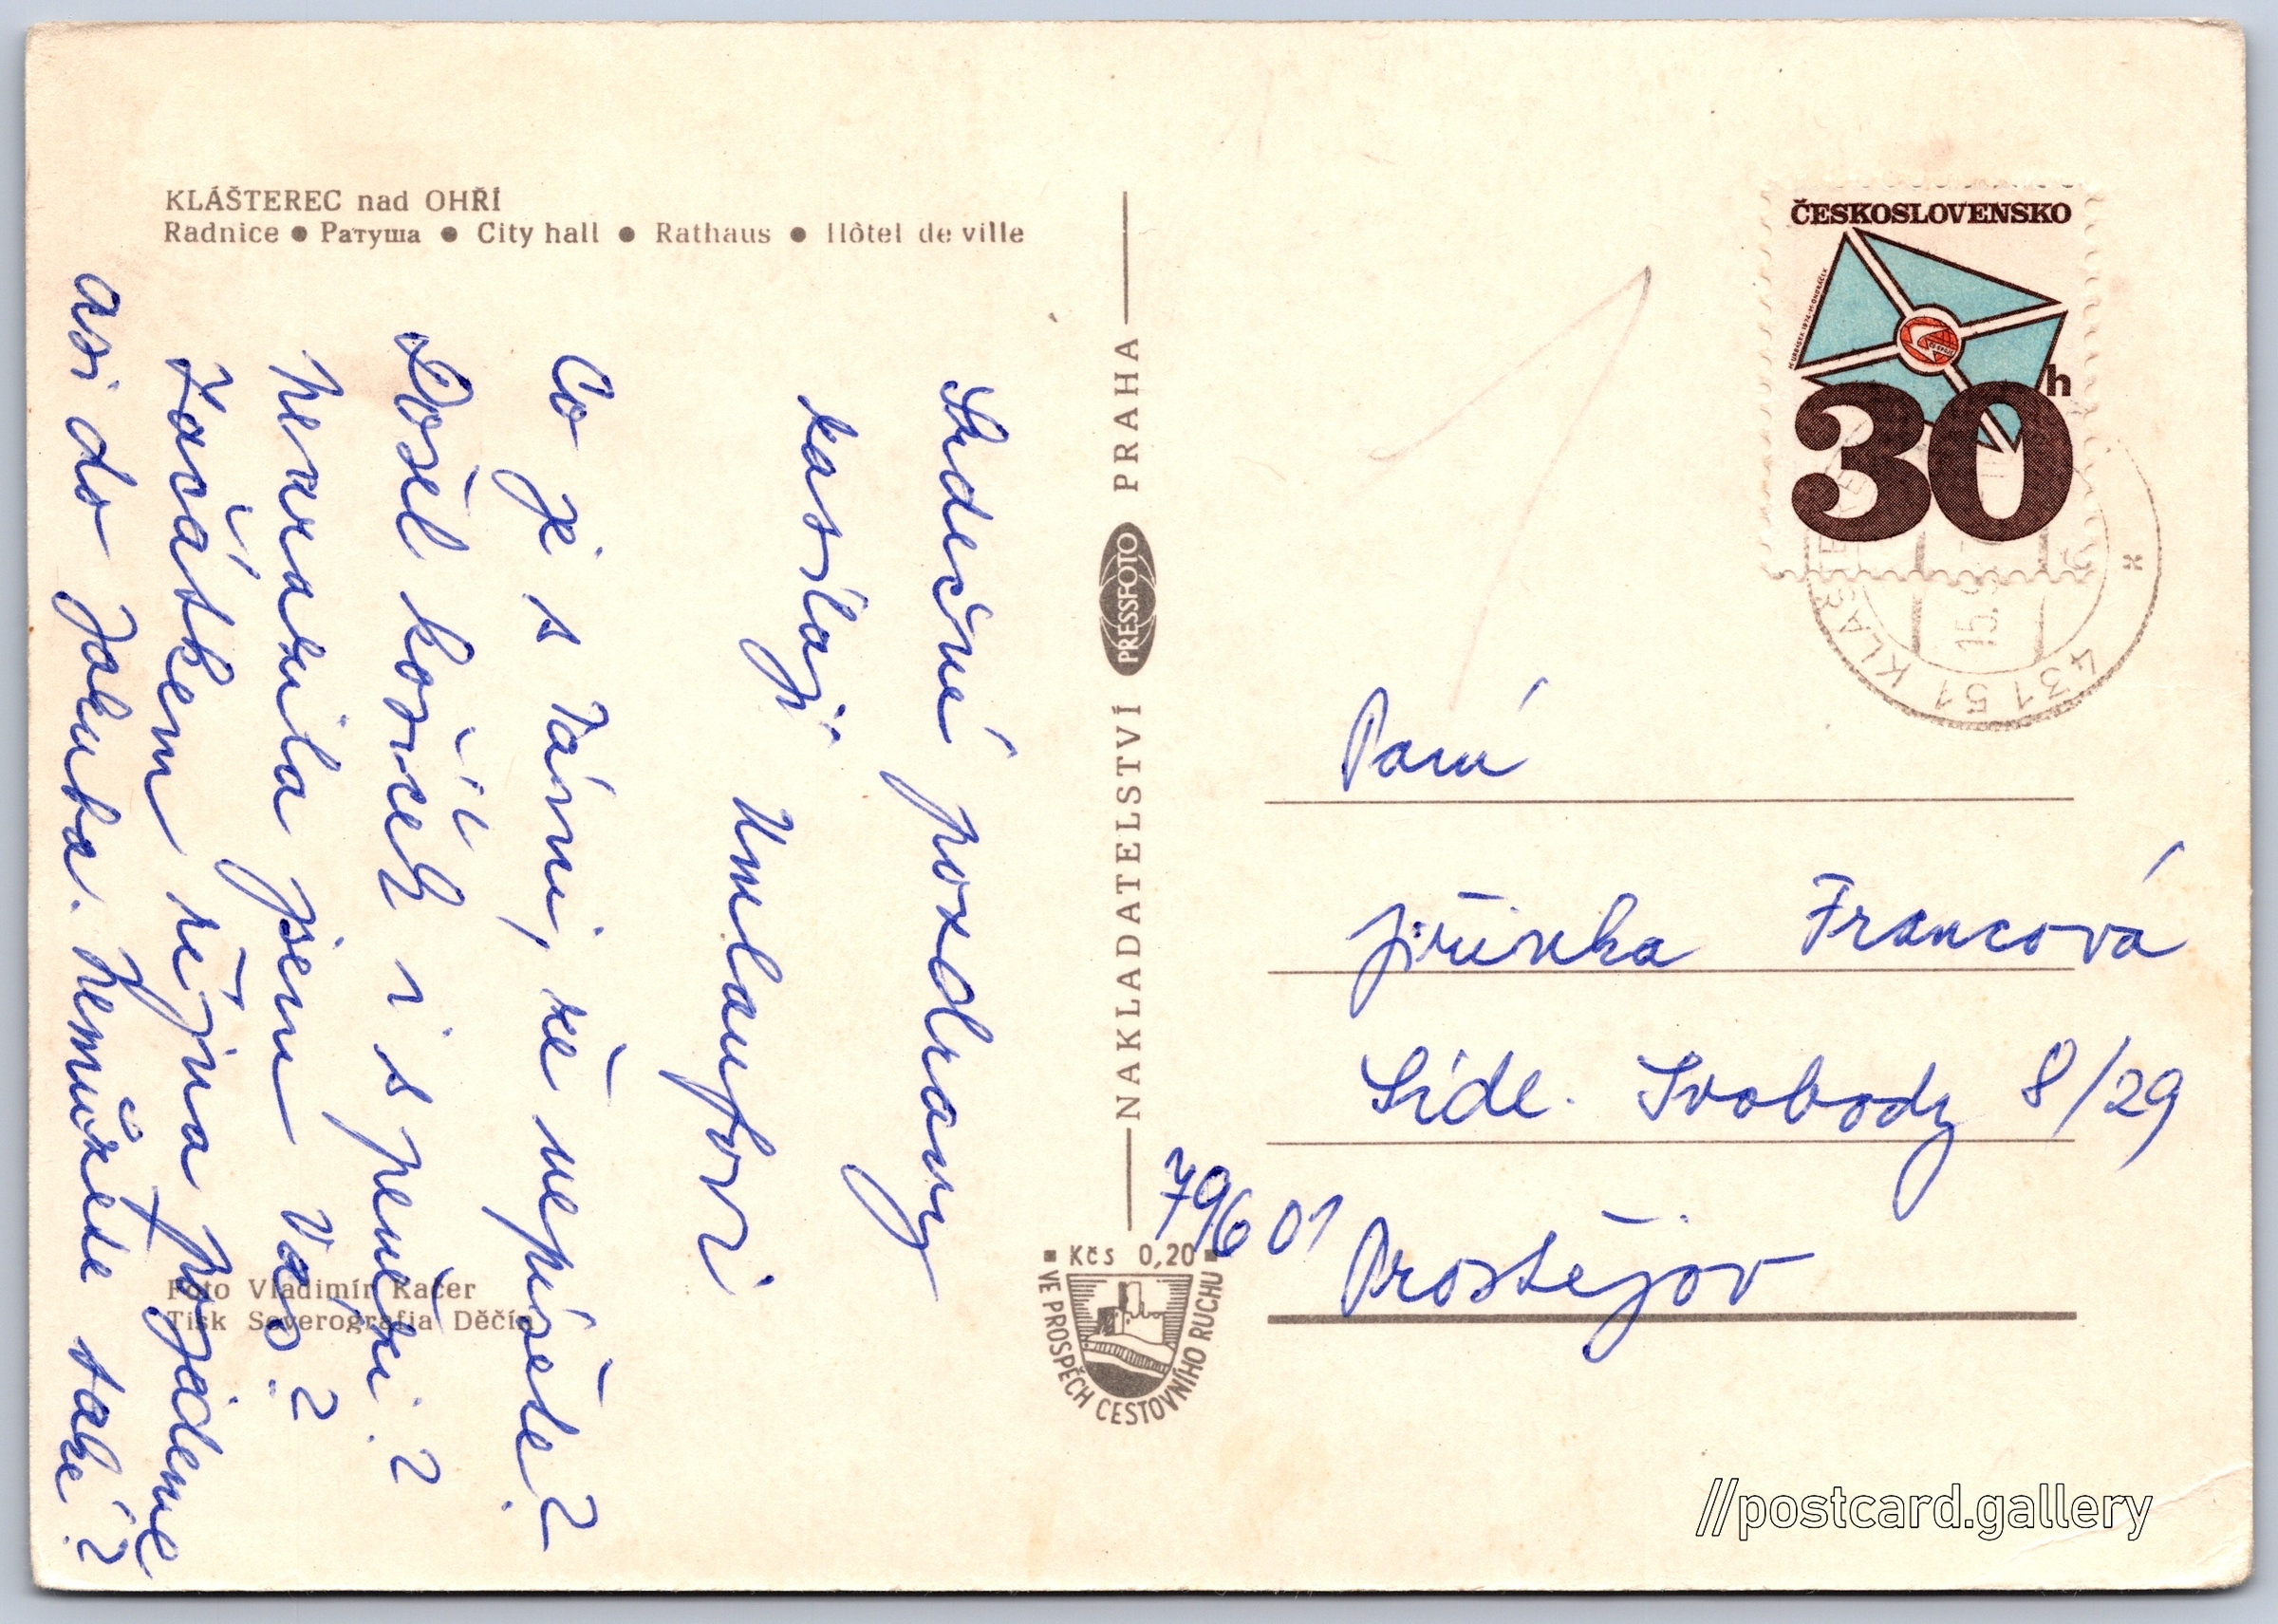 KLÁŠTEREC nad OHŘÍ
Radnice ● Ратуша ● City hall ● Rathaus ● Hôtel de ville
Srdečné pozdravy
zasílají Umlaufovi
Co je s Vámi, že nepíšete?
Došel košíček i s penězi?
neurazila jsem Vás?
Začátkem října pojedeme
asi do Jakuba. Nemůžete také?
Foto Vladimír Kačer
Tisk Severografia Děčín
NAKLADATELSTVÍ PRESSFOTO PRAHA
Kčs 0,20
VE PROSPĚCH CESTOVNÍHO RUCHU
ČESKOSLOVENSKO
30h
431 51 KLÁŠTEREC
15.9
Paní
Jiřinka Francová
Sídl. Svobody 8/29
796 01 Prostějov
//postcard.gallery